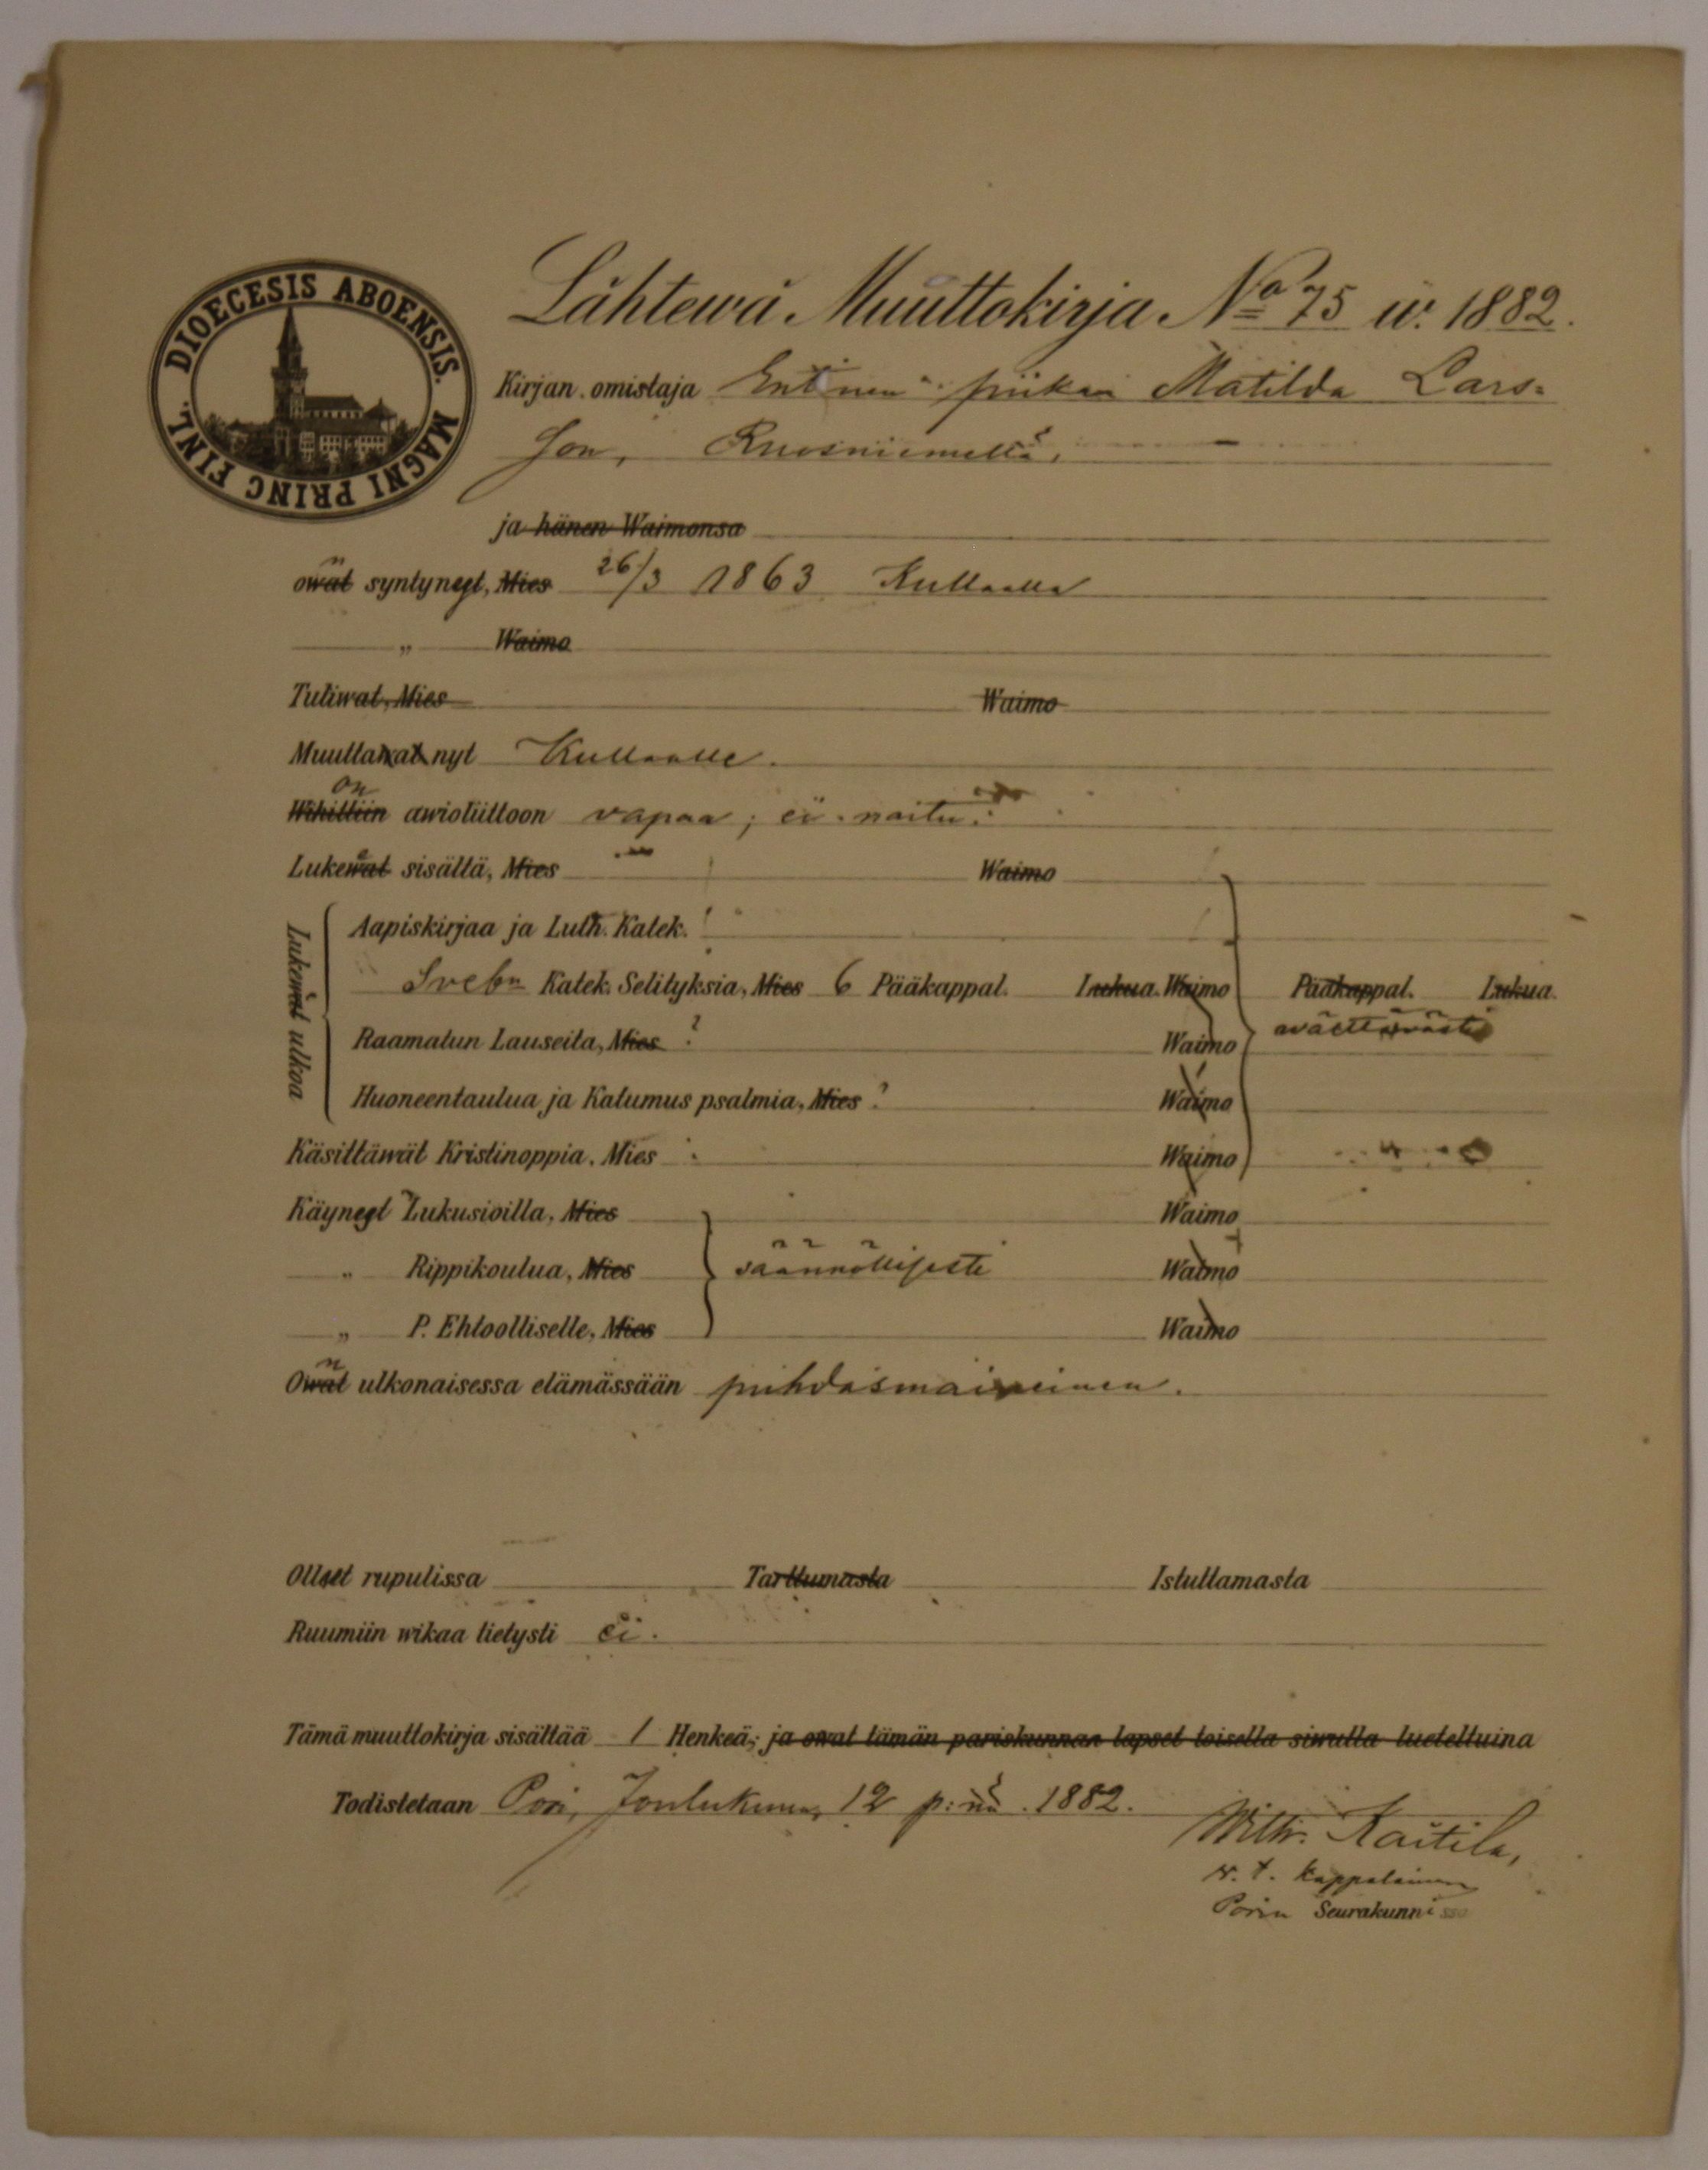 DIOECESIS ABOENSIS. MAGNI PRINC FINL.
Lähtewä Muuttokirja No 75 w. 1882.
Kirjan omistaja Entinen piikan Matilda Lars=
son, Ruosniemeltä,
ja hänen Waimonsa
owat syntynegt, Mies 26/3 1863 Kullaalla
„ Waimo
Tuliwat, Mies Waimo
Muuttawat nyt Kullaalle.
on
Wihittiin awioliittoon vapaa; ei naitu.
Lukewat sisältä, Mies Waimo
Lukewat ulkoa
Aapiskirjaa ja Luth. Katek.
Sveb. Katek. Selityksia, Mies 6 Pääkappal. Lukua. Waimo Pääkappal. Lukua.
Raamatun Lauseita, Mies Waimo
Huoneentaulua ja Katumus psalmia, Mies Waimo
Käsittäwät Kristinoppia. Mies Waimo
Käynegt Lukusioilla, Mies Waimo
„ Rippikoulua, Mies säännöllisesti Waimo
„ P. Ehtoolliselle, Mies Waimo
Owat ulkonaisessa elämässään puhdasmaineinen.
Olleet rupulissa Tarttumasta Istuttamasta
Ruumiin wikaa tietysti ei.
Tämä muuttokirja sisältää 1 Henkeä; ja owat tämän pariskunnan lapset toisella siwulla lueteltuina
Todistetaan Pori, Joulukuun 12 p:nä 1882.
Wilh. Kaitila,
v. t. kappalainen
Porin Seurakunnissa